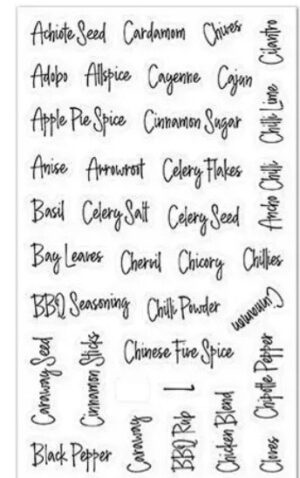 Achiote Seed Cardamom Chives Cilantro
Adobo Allspice Cayenne Cajun
Chili Lime
Apple Pie Spice Cinnamon Sugar
Anise Arrowroot Celery Flakes
Ancho Chili
Basil Celery Salt Celery Seed
Bay Leaves Chervil Chicory Chillies
BBQ Seasoning Chilli Powder Cinnamon
Caraway Seed
Cinnamon Sticks
Chinese Five Spice
Chipotle Pepper
Black Pepper
Caraway
BBQ Rub
Chicken Blend
Cloves